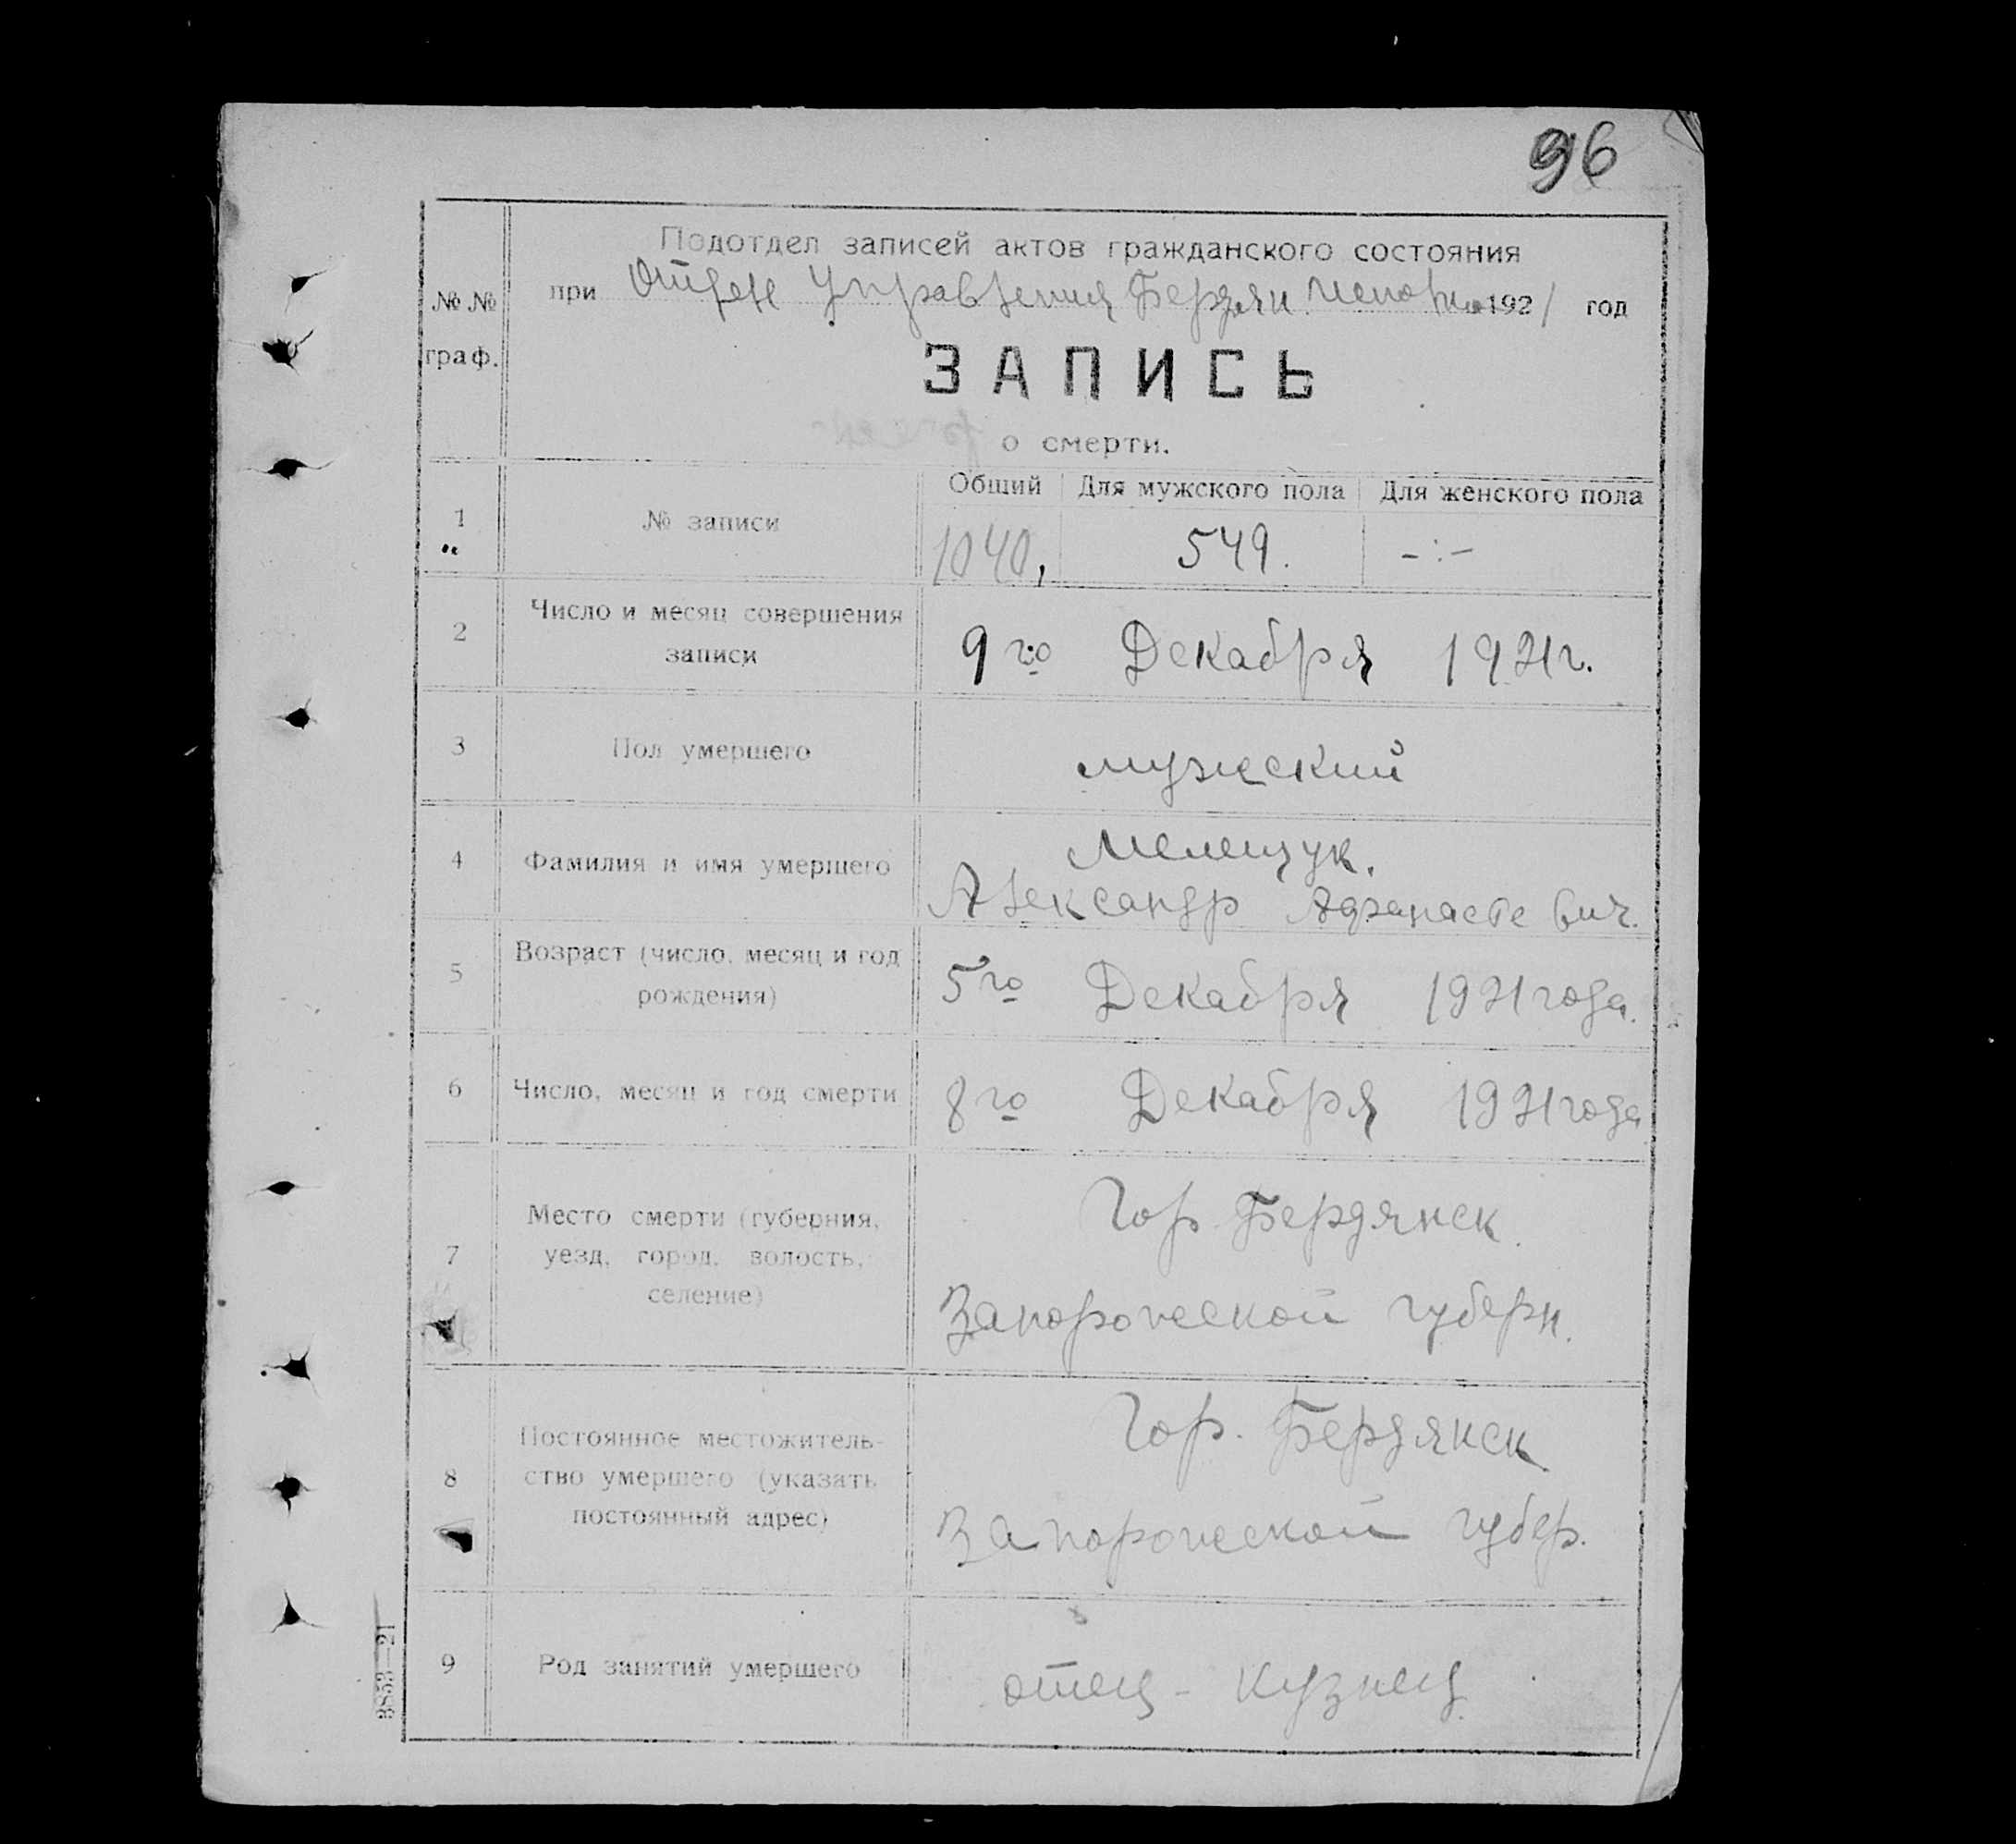 96
Подотдел записей актов гражданского состояния
при Отдел Управления Бердян. 1921 год
№№
граф.
ЗАПИСЬ
о смерти.
Общий Для мужского пола Для женского пола
1 № записи 1040, 549. -:-
2 Число и месяц совершения
записи
9го Декабря 1921г.
3 Пол умершего мужеский
4 Фамилия и имя умершего
Мелещук.
Александр Афанасьевич.
5 Возраст (число, месяц и год
рождения)
5го Декабря 1921 года.
6 Число, месяц и год смерти 8го Декабря 1921 года
7 Место смерти (губерния,
уезд, город, волость,
селение)
Гор. Бердянск
Запорожской губерн.
8 Постоянное местожитель-
ство умершего (указать
постоянный адрес)
Гор. Бердянск
Запорожской губер.
9 Род занятий умершего отец - кузнец.
3853—21